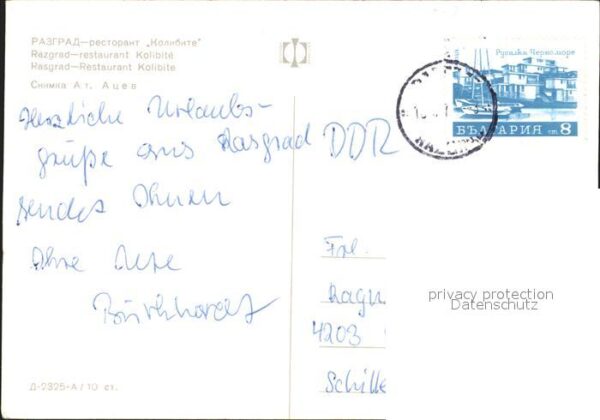 РАЗГРАД—ресторант „Колибите"
Razgrad—restaurant Kolibité
Rasgrad—Restaurant Kolibite
Снимка Ат. Ацев
Русалка Черноморе
БЪЛГАРИЯ ст 8
Herzliche Urlaubs-
grüße aus Rasgrad
sendet Ihnen
Ihre Ute
Burkhardt
DDR
Frl.
Ragu
4203
Schille
privacy protection
Datenschutz
Д-2325-А / 10 ст.